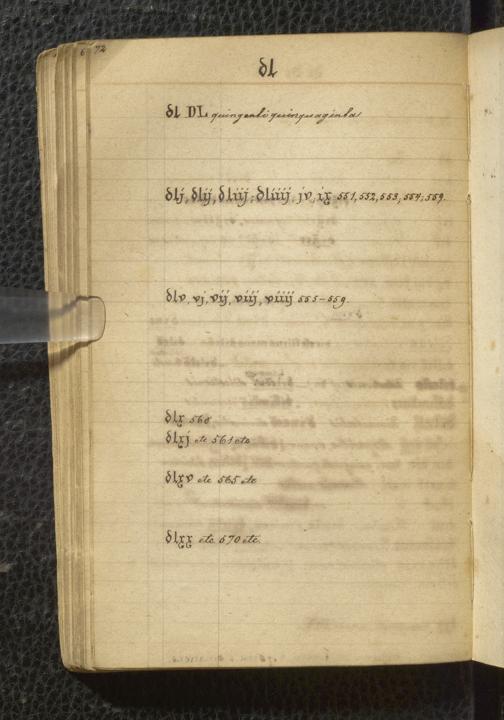 72
dl
dl DL quingenti quinquaginta
dlj, dlij, dliij, dliiij, jv, ix 551, 552, 553, 554, 559.
dlv, vj, vij, viij, viiij 555-559.
dlx 560
dlxj etc 561 etc
dlxv etc 565 etc
dlxx etc. 570 etc.